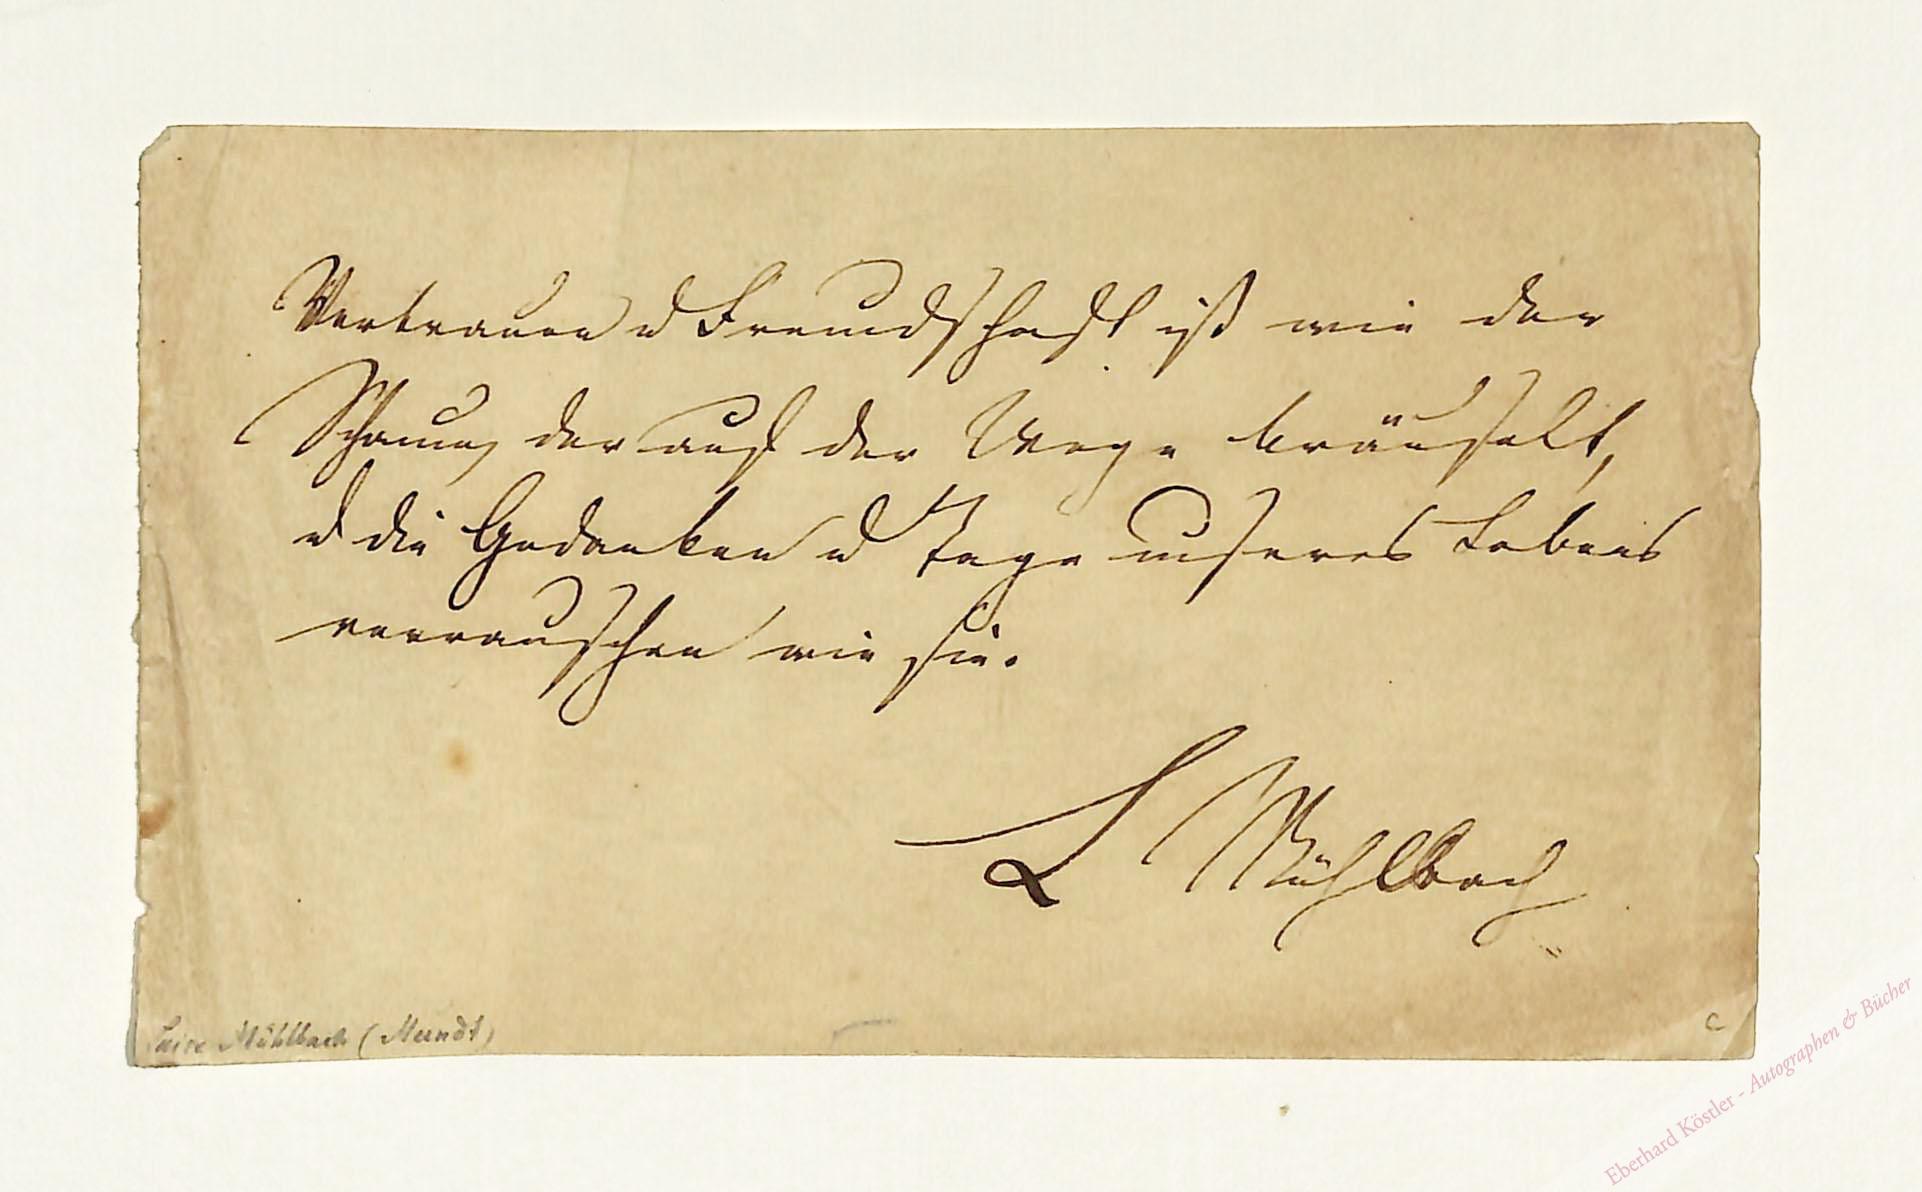 Vertrauen u Freundschaft ist wie der
Schaum, der auf der Woge kräuselt,
u die Gedanken u Tage unseres Lebens
verrauschen wie sie.
L Mühlbach
Luise Mühlbach (Mundt)
c
Eberhard Köstler - Autographen & Bücher